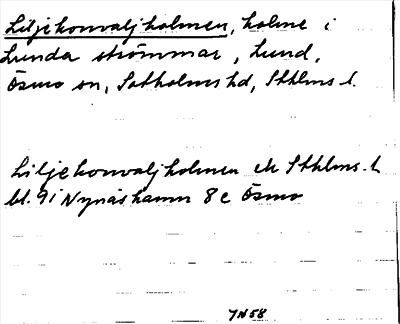 Liljekonvaljholmen, holme i
Lunda strömmar, Lund,
Ösmo sn, Sotholms hd, Sthlms l.
Liljekonvaljholmen ek Sthlms l.
bl. 9i Nynäshamn 8c Ösmo
JN58